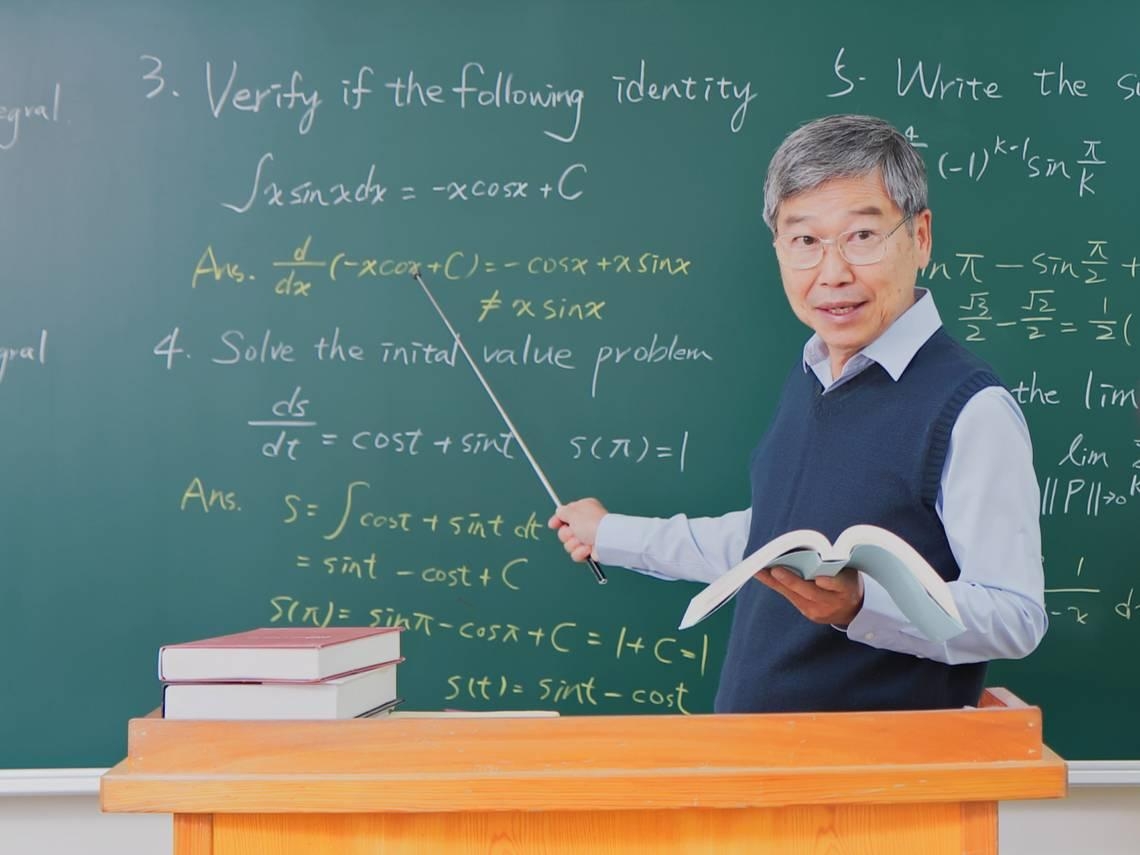 egral.
gral
3. Verify if the following identity
∫x sin x dx = -x cos x + C
Ans. d/dx (-x cos x + C) = - cos x + x sin x
≠ x sin x
4. Solve the inital value problem
ds/dt = cos t + sin t   s(π) = 1
Ans. s = ∫ cos t + sin t dt
= sin t - cos t + C
s(π) = sin π - cos π + C = 1 + C = 1
s(t) = sin t - cos t
5. Write the su
4 (-1)^(k-1) sin π/k
in π - sin π/2 +
√3/2 - √2/2 = 1/2 (
the lim
lim
||P||→0 k
1/-x d